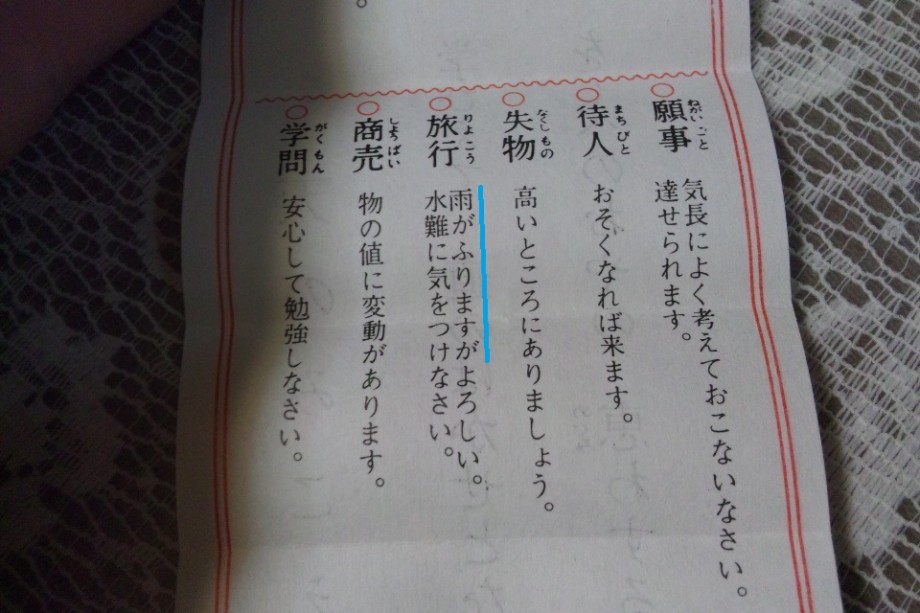 願事
ねがいごと
気長によく考えておこないなさい。
達せられます。
待人
まちびと
おそくなれば来ます。
失物
なくしもの
高いところにありましょう。
旅行
りょこう
雨がふりますがよろしい。
水難に気をつけなさい。
商売
しょうばい
物の値に変動があります。
学問
がくもん
安心して勉強しなさい。